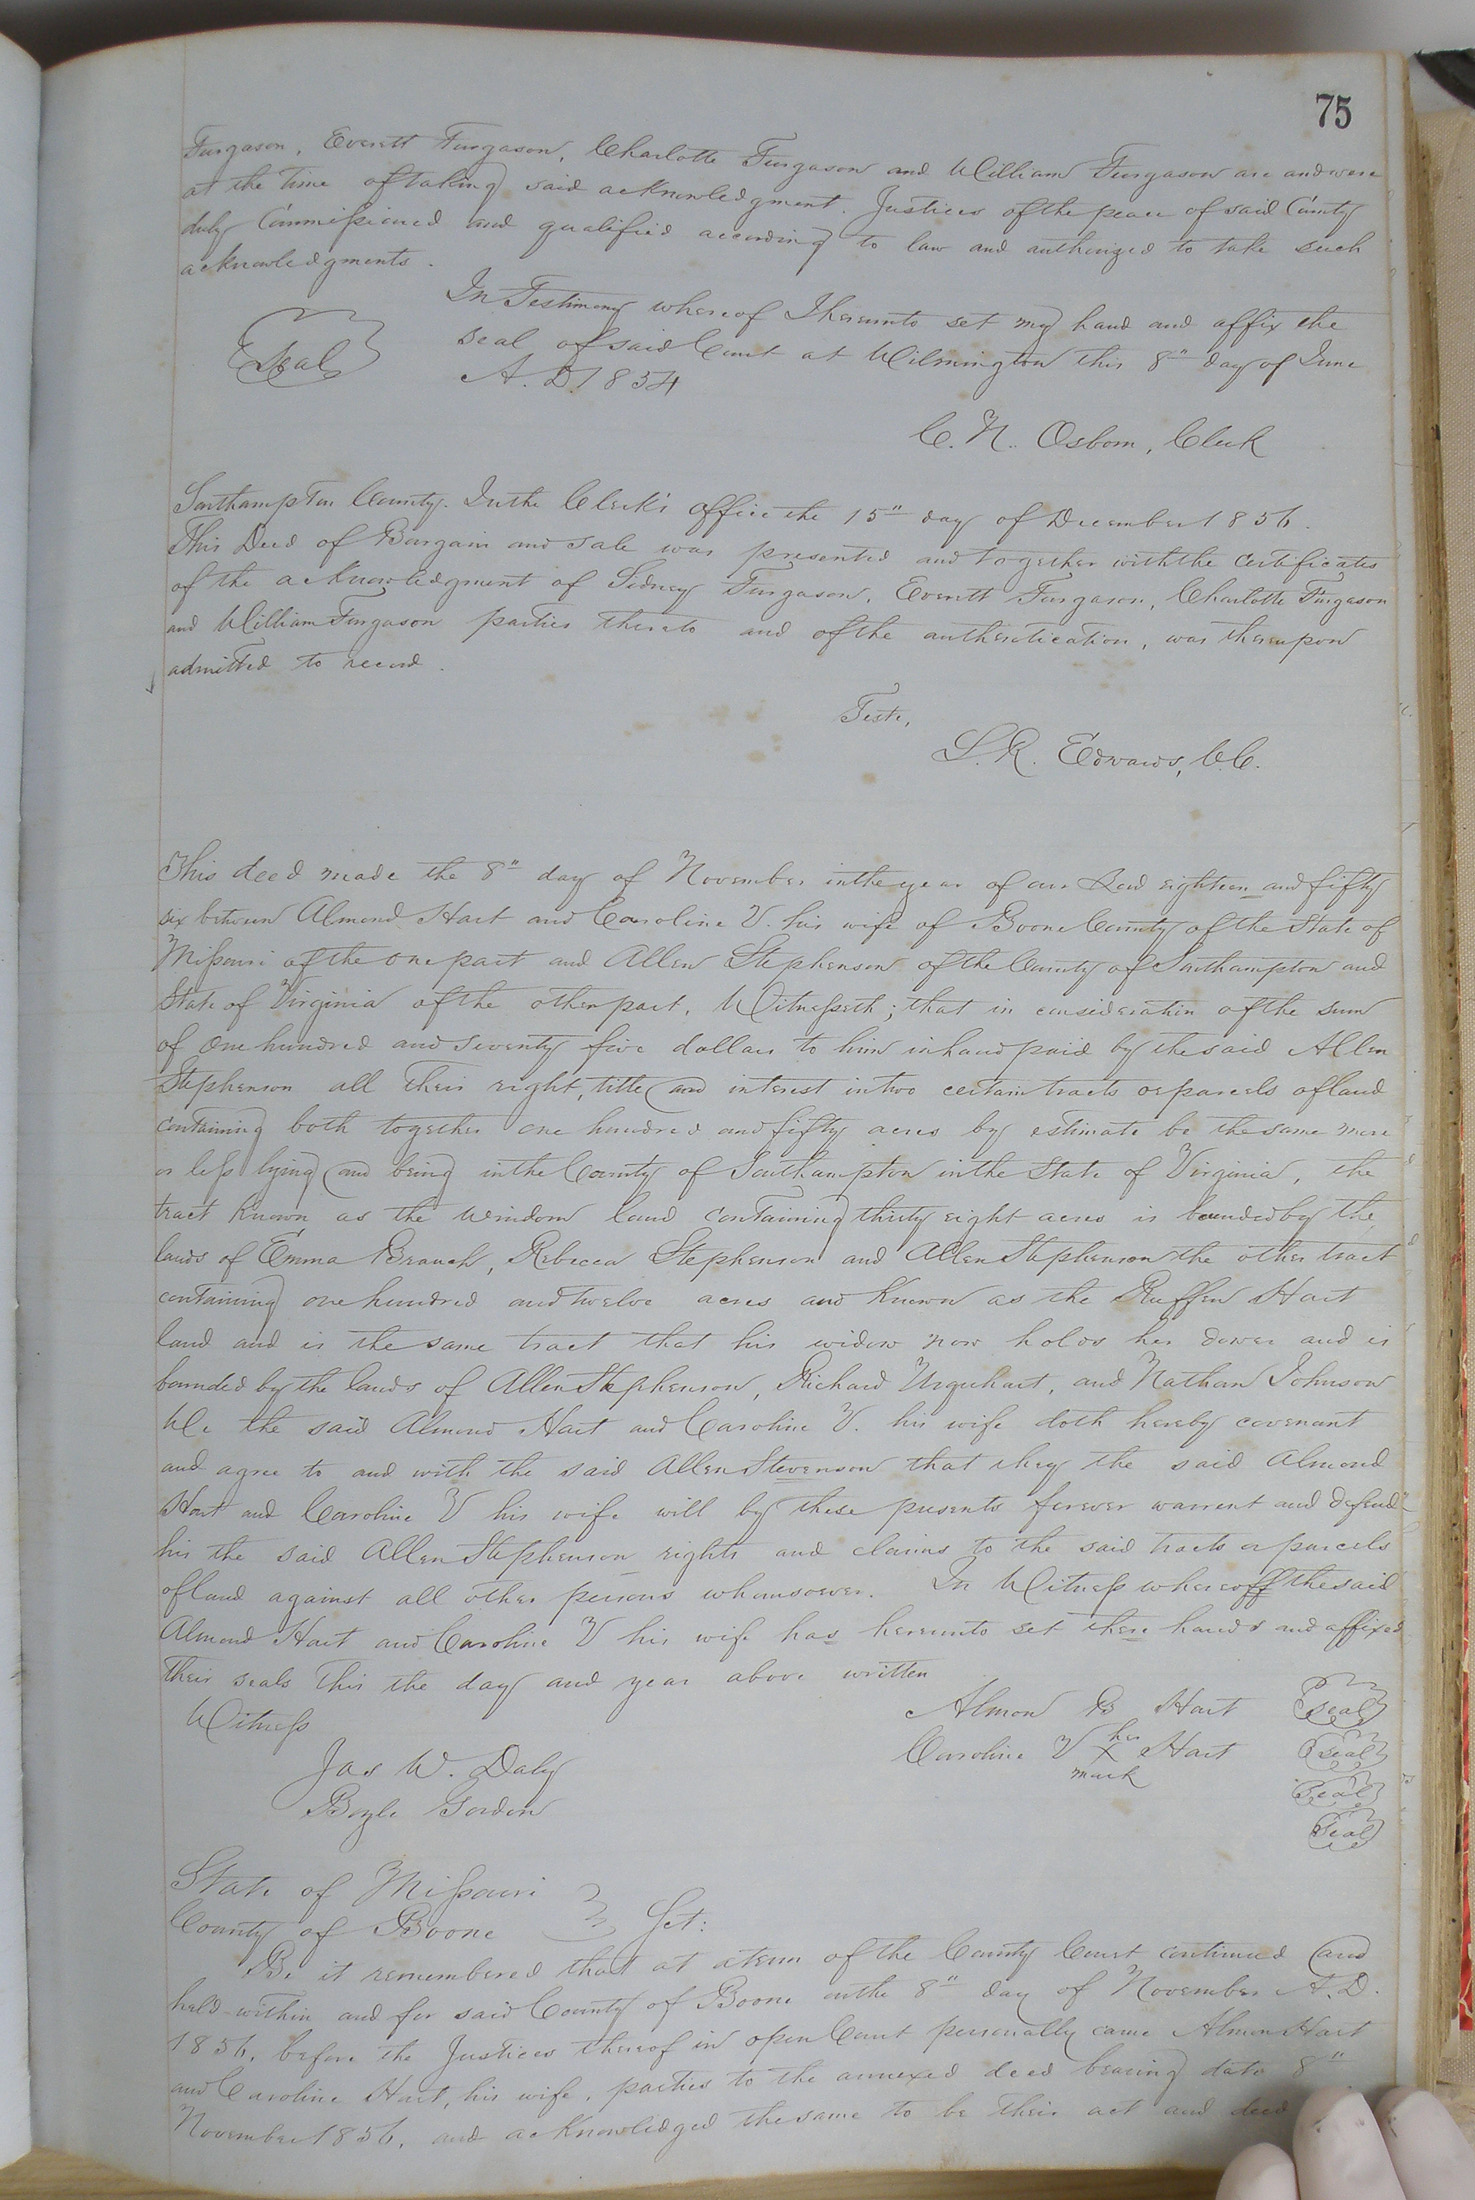 75
Furgason, Everett Furgason, Charlotte Furgason and William Furgason are and were
at the time of taking said acknowledgment, Justices of the peace of said County
duly Commissioned and qualified according to law and authorized to take such
acknowledgments.
In Testimony whereof I hereunto set my hand and affix the
Seal
seal of said Court at Wilmington this 8" day of June
A. D. 1854
C. N. Osborn, Clerk
Southampton County. In the Clerk's office the 15" day of December 1856.
This Deed of Bargain and Sale was presented and together with the certificates
of the acknowledgment of Sidney Furgason, Everett Furgason, Charlotte Furgason
and William Furgason parties thereto and of the authentication, was thereupon
admitted to record.
Teste,
L. R. Edwards, C.C.
This deed made the 8" day of November in the year of our Lord eighteen and fifty
six between Almond Hart and Caroline V. his wife of Boone County of the State of
Missouri of the one part and Allen Stephenson of the County of Southampton and
State of Virginia of the other part, Witnesseth; that in consideration of the sum
of One hundred and seventy five dollars to him in hand paid by the said Allen
Stephenson all their right, title and interest in two certain tracts or parcels of land
containing both together one hundred and fifty acres by estimate be the same more
or less lying and being in the County of Southampton in the State of Virginia, the
tract known as the Windom land containing thirty eight acres is bounded by the
lands of Emma Branch, Rebecca Stephenson and Allen Stephenson the other tract
containing one hundred and twelve acres and known as the Ruffin Hart
land and is the same tract that his widow now holds her dower and is
bounded by the lands of Allen Stephenson, Richard Urquhart, and Nathan Johnson
We the said Almond Hart and Caroline V. his wife doth hereby covenant
and agree to and with the said Allen Stevenson that they the said Almond
Hart and Caroline V his wife will by these presents forever warrent and defend
his the said Allen Stephenson rights and claims to the said tracts or parcels
of land against all other persons whomsoever. In Witness whereoff the said
Almond Hart and Caroline V his wife has hereunto set there hands and affixed
their seals this the day and year above written
Witness
Almon B Hart seal
Caroline V her X mark Hart seal
Jas W. Daly
seal
Boyle Gordon
seal
State of Missouri
County of Boone } Sct:
Be it remembered that at a term of the County Court continued and
held within and for said County of Boone on the 8" day of November A. D.
1856, before the Justices thereof in open Court personally came Almon Hart
and Caroline Hart, his wife, parties to the annexed deed bearing date 8"
November 1856, and acknowledged the same to be their act and deed